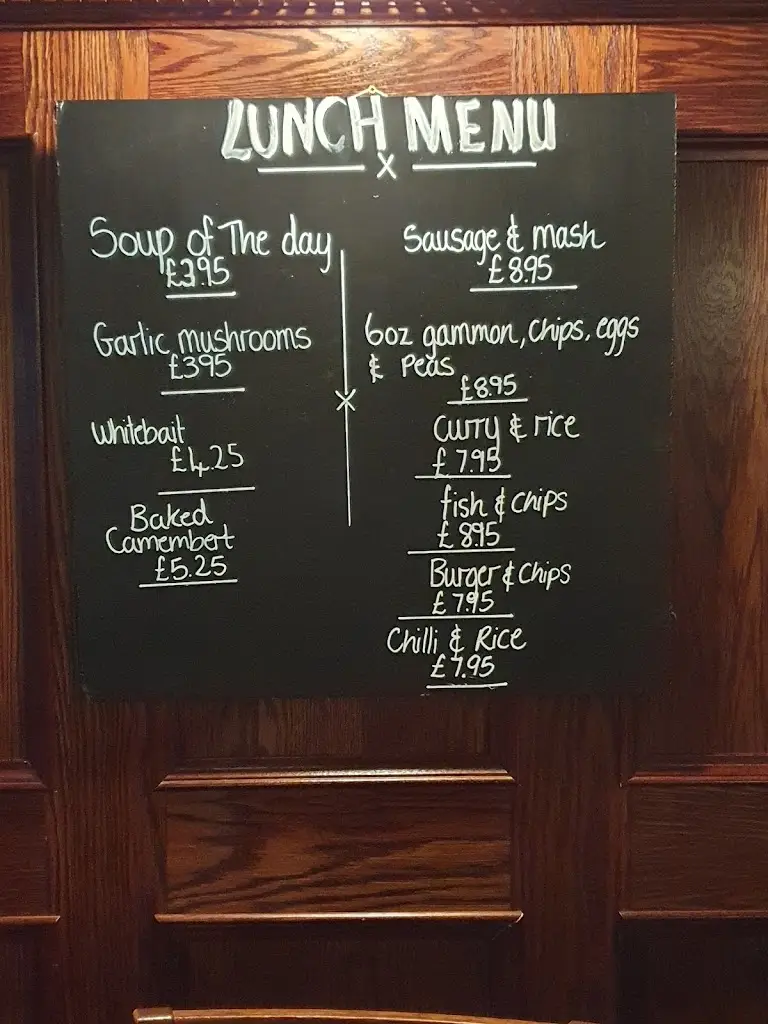 LUNCH MENU
x
Soup of The day
£3.95
Garlic mushrooms
£395
Whitebait
£4.25
Baked
Camembert
£5.25
x
Sausage & mash
£8.95
6oz gammon, chips, eggs
& Peas
£8.95
Curry & rice
£7.95
fish & chips
£8.95
Burger & Chips
£7.95
Chilli & Rice
£7.95